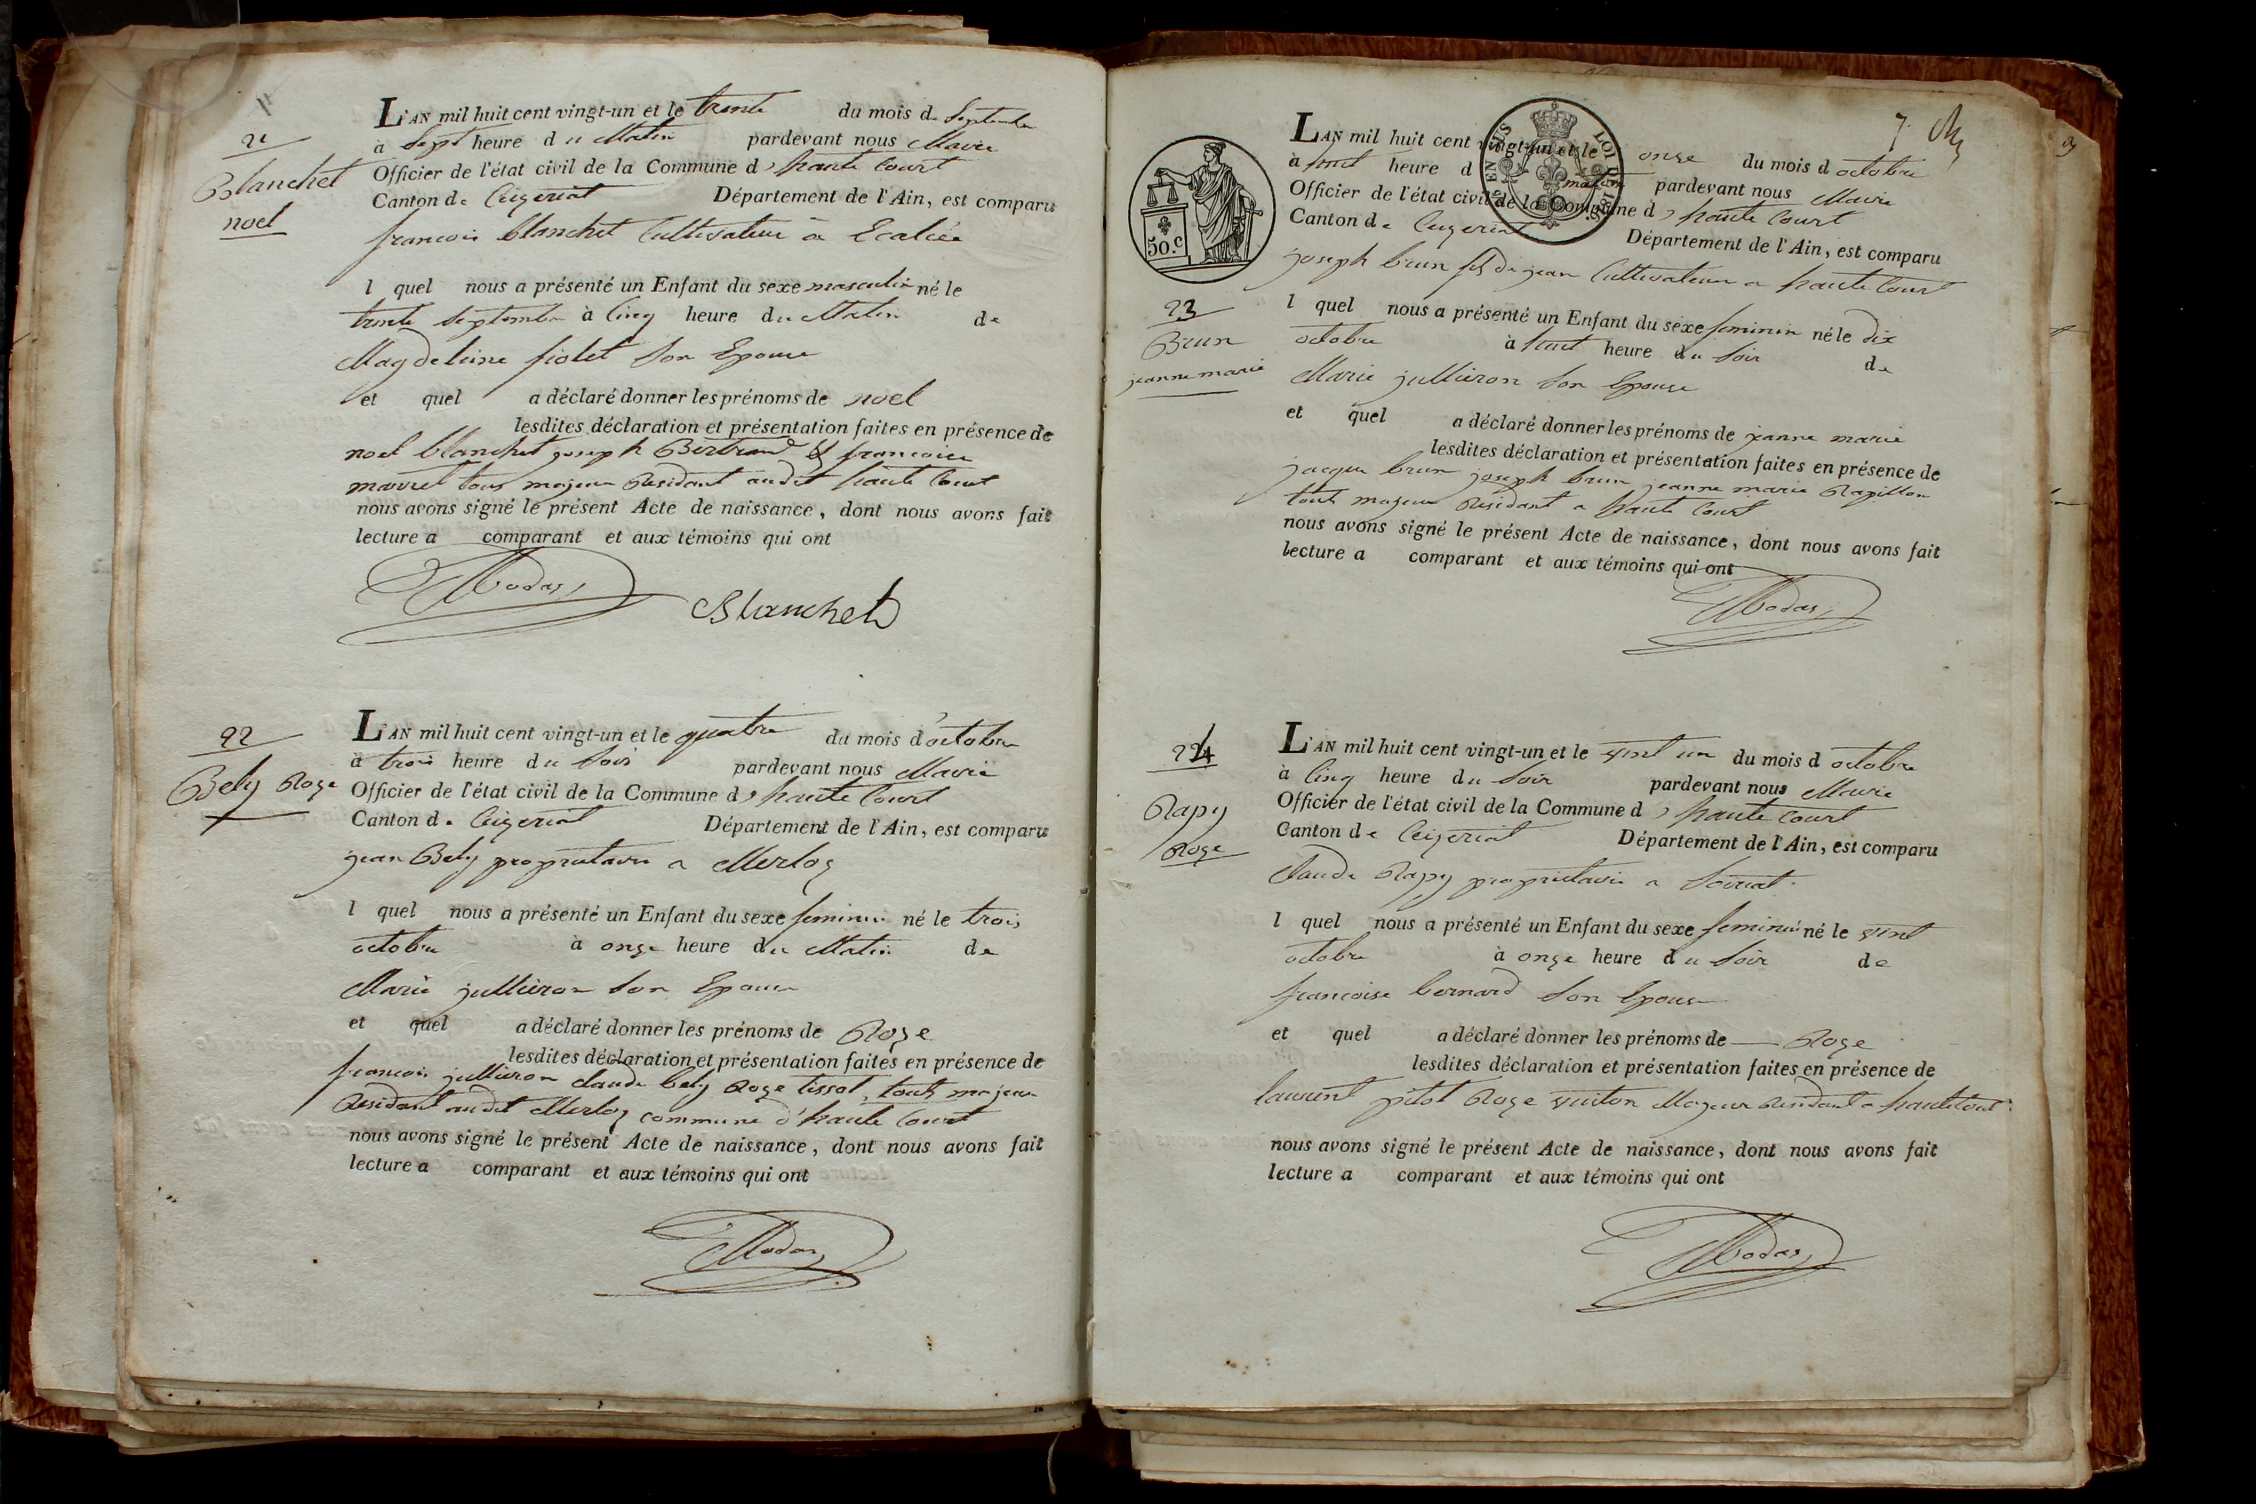 21
Blanchet
noel
L'AN mil huit cent vingt-un et le trente du mois de Septembre
à Sept heure du Matin pardevant nous Maire
Officier de l'état civil de la Commune d'haute Court
Canton de Ceyzeriat Département de l'Ain, est comparu
francois blanchet Cultivateur à
l quel nous a présenté un Enfant du sexe masculin né le
trente Septembre à Cinq heure du Matin de
Magdeleine fiolet Son Epouse
et quel a déclaré donner les prénoms de noel
lesdites déclaration et présentation faites en présence de
noel blanchet joseph Bertrand et francoise
marret tous majeur Residant audit haute Court
nous avons signé le présent Acte de naissance, dont nous avons fait
lecture a comparant et aux témoins qui ont
Modas
Blanchet
22
Bely Roze
L'AN mil huit cent vingt-un et le quatre du mois d'octobre
à trois heure du Soir pardevant nous Maire
Officier de l'état civil de la Commune d'haute Court
Canton de Ceyzeriat Département de l'Ain, est comparu
jean Bely proprietaire a Merloz
l quel nous a présenté un Enfant du sexe feminin né le trois
octobre à onze heure du Matin de
Marie jullieron Son Epouse
et quel a déclaré donner les prénoms de Roze
lesdites déclaration et présentation faites en présence de
francois jullieron claude bely Roze tissot, touts majeur
Residant audit Merloz commune d'haute Court
nous avons signé le présent Acte de naissance, dont nous avons fait
lecture a comparant et aux témoins qui ont
Modas
7.
50.c
EN SUS
LOI DE 1816
23
Brun
jeanne marie
L'AN mil huit cent vingt-un et le onze du mois d octobre
à huit heure d matin pardevant nous Maire
Officier de l'état civil de la Commune d'haute Court
Canton de Ceyzeriat Département de l'Ain, est comparu
joseph brun fils de jean Cultivateur a haute Court
l quel nous a présenté un Enfant du sexe feminin né le dix
octobre à huit heure du Soir de
Marie jullieron Son Epouse
et quel a déclaré donner les prénoms de jeanne marie
lesdites déclaration et présentation faites en présence de
jacque brun joseph brun jeanne marie Rapillon
touts majeur Residant a haute Court
nous avons signé le présent Acte de naissance, dont nous avons fait
lecture a comparant et aux témoins qui ont
Modas
24
Rapy
Roze
L'AN mil huit cent vingt-un et le vint un du mois d octobre
à Cinq heure du Soir pardevant nous Maire
Officier de l'état civil de la Commune d'haute Court
Canton de Ceyzeriat Département de l'Ain, est comparu
Claude Rapy proprietaire a Soiriat
l quel nous a présenté un Enfant du sexe feminin né le vint
octobre à onze heure du Soir de
francoise bernard Son Epouse
et quel a déclaré donner les prénoms de Roze
lesdites déclaration et présentation faites en présence de
laurent pitot Roze vuiton Majeur Residant a hautecourt
nous avons signé le présent Acte de naissance, dont nous avons fait
lecture a comparant et aux témoins qui ont
Modas